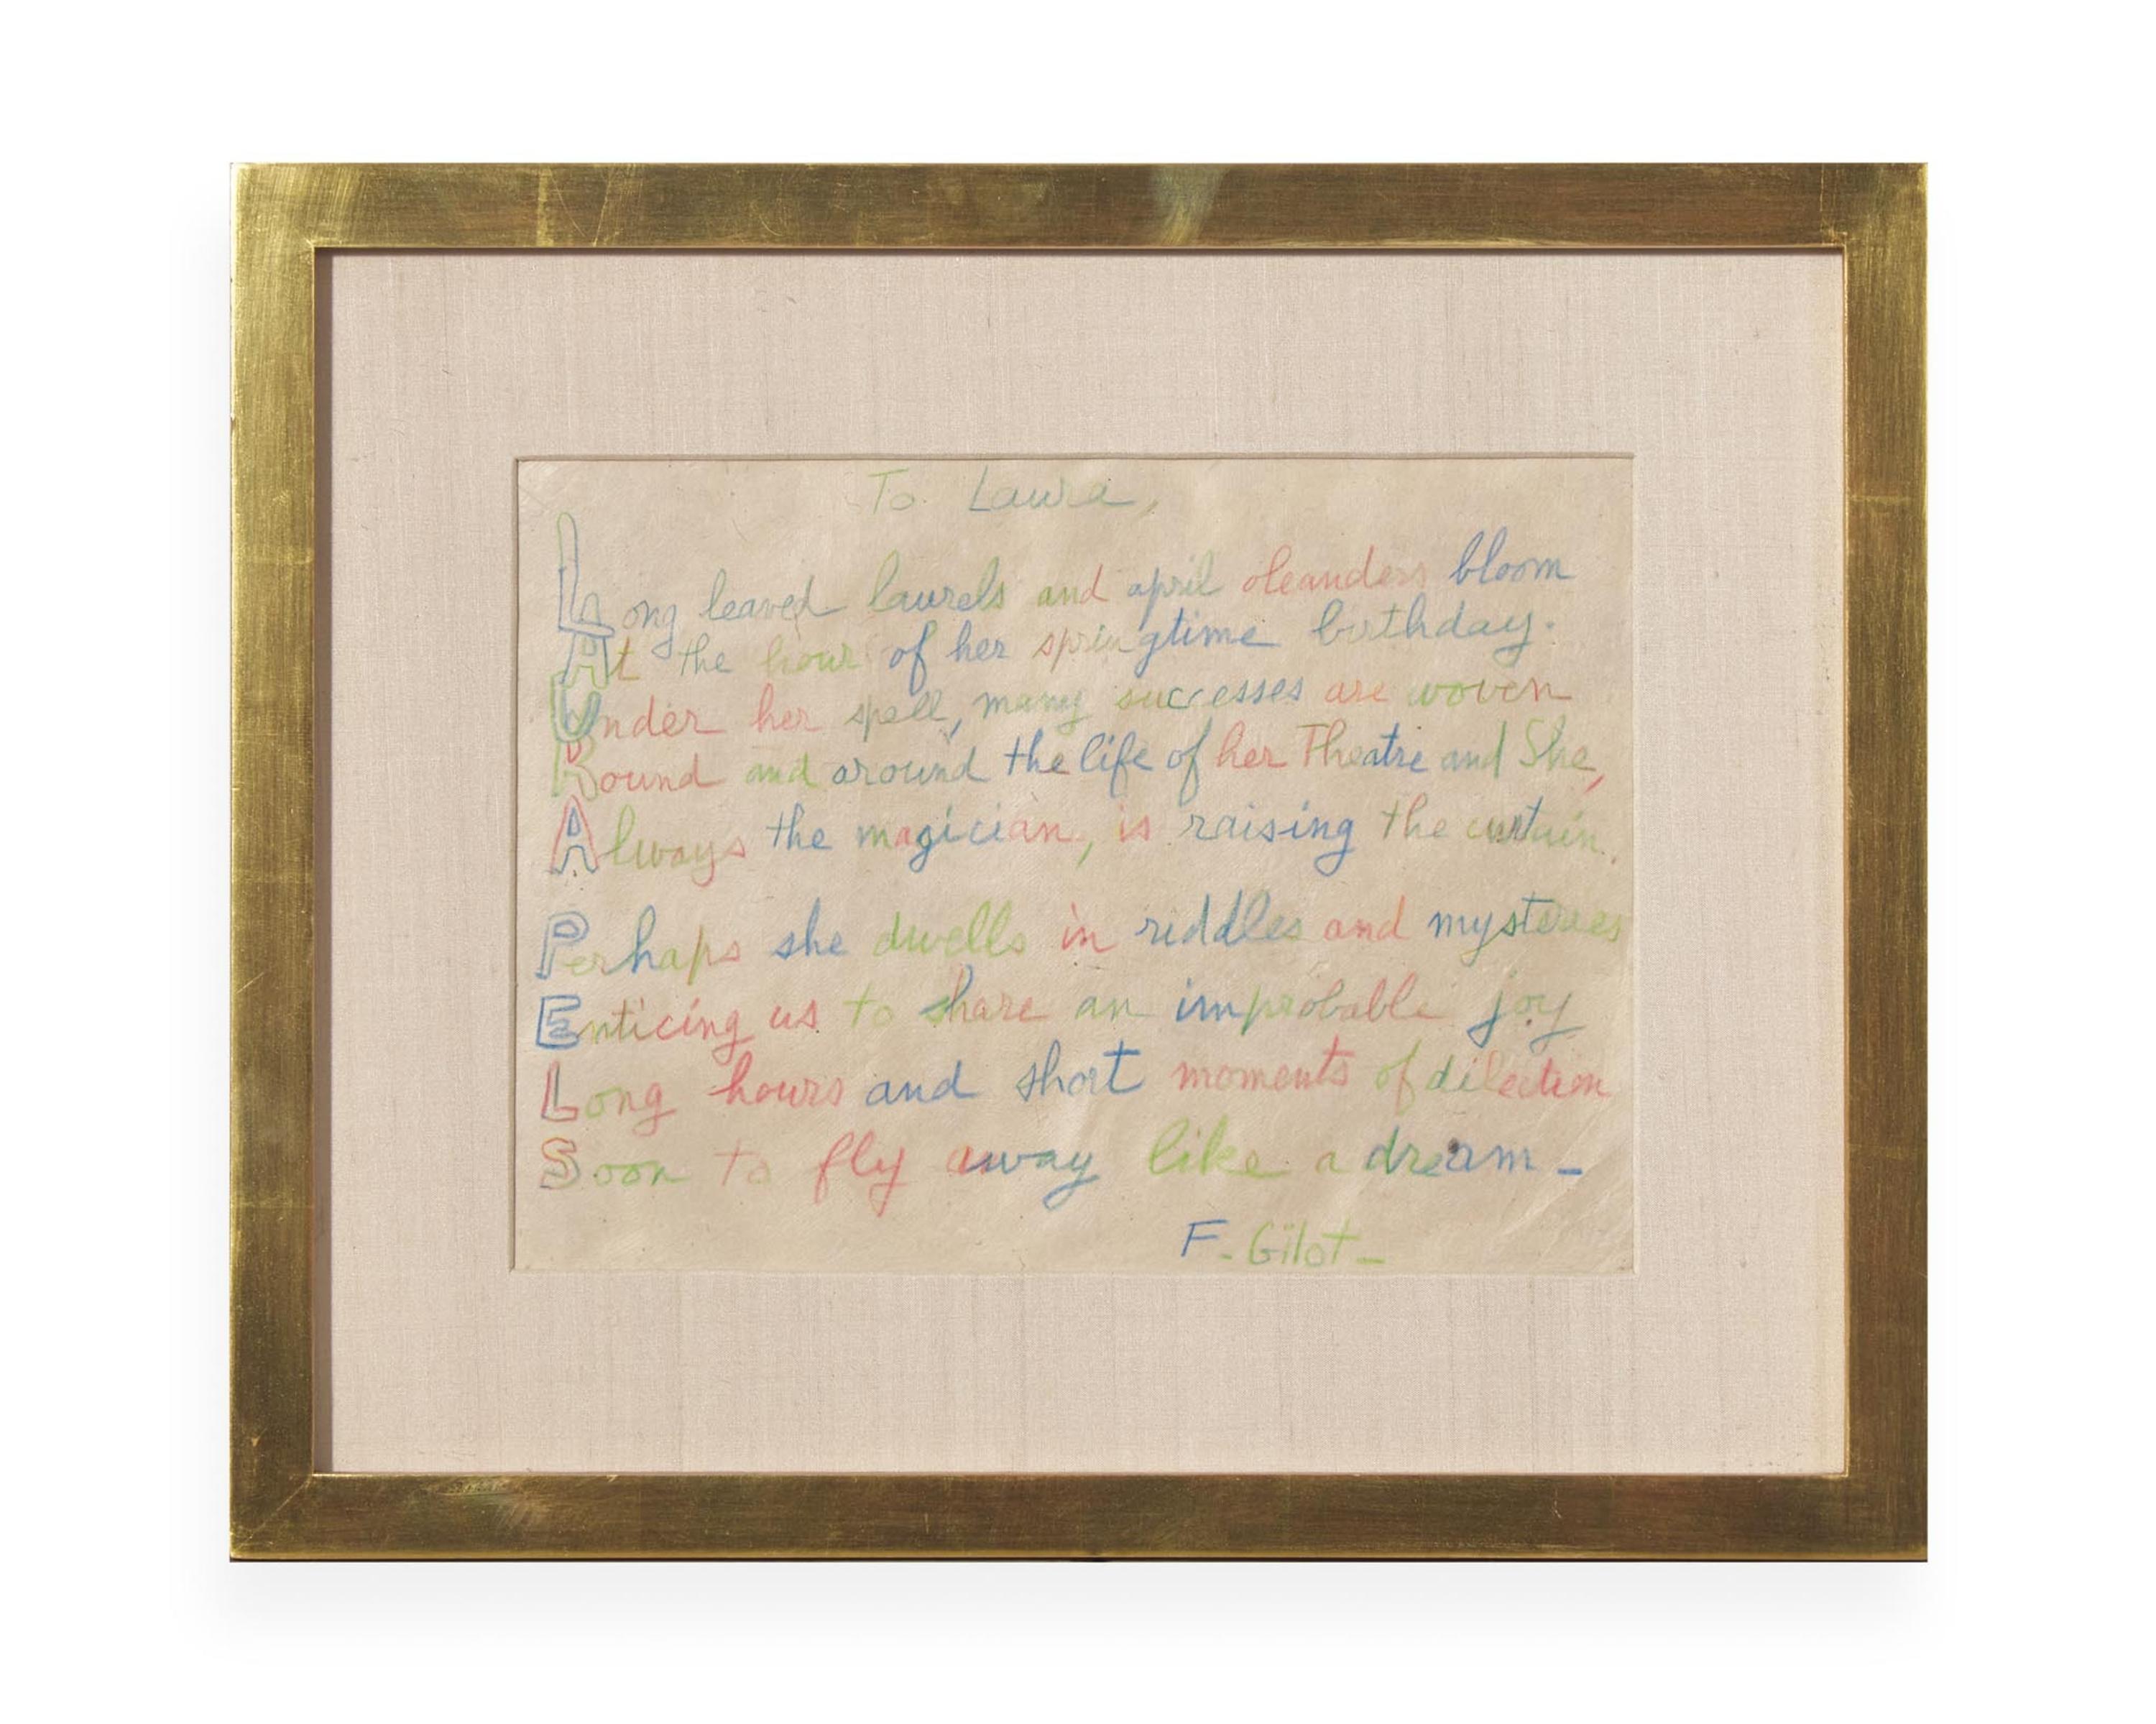 To Laura,
Long leaved laurels and april oleanders bloom
At the hour of her springtime birthday.
Under her spell, many successes are woven
Round and around the life of her Theatre and She,
Always the magician, is raising the curtain.
Perhaps she dwells in riddles and mysteries
Enticing us to share an improbable joy
Long hours and short moments of dilection
Soon to fly away like a dream -
F- Gilot -